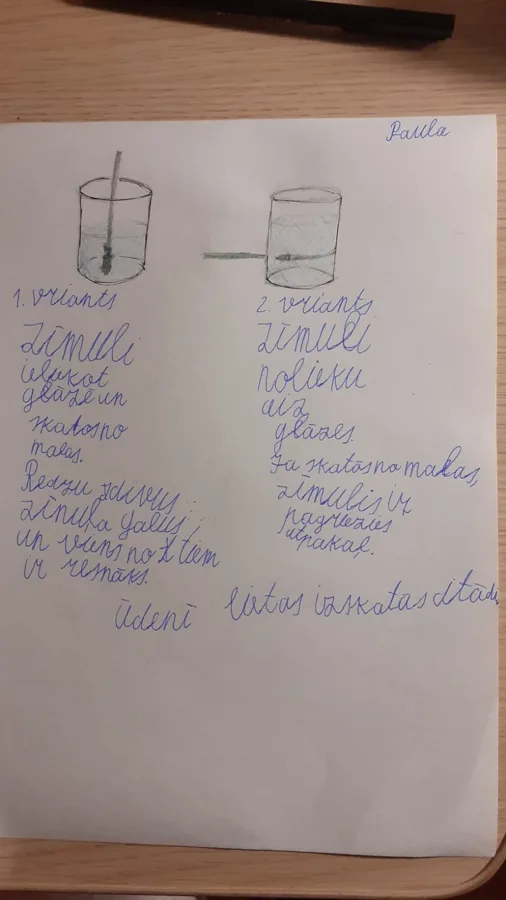 Paula
1. vriants
zīmuli
ielukot
glāzē un
skatos no
malas.
Redzu divus
zīmuļa galus,
un viens no tiem
ir resnāks.
2. vriants
zīmuli
nolieku
aiz
glāzes.
Ja skatās no malas,
zīmulis ir
pagriezies
atpakaļ.
Ūdenī lietas izskatas citādi